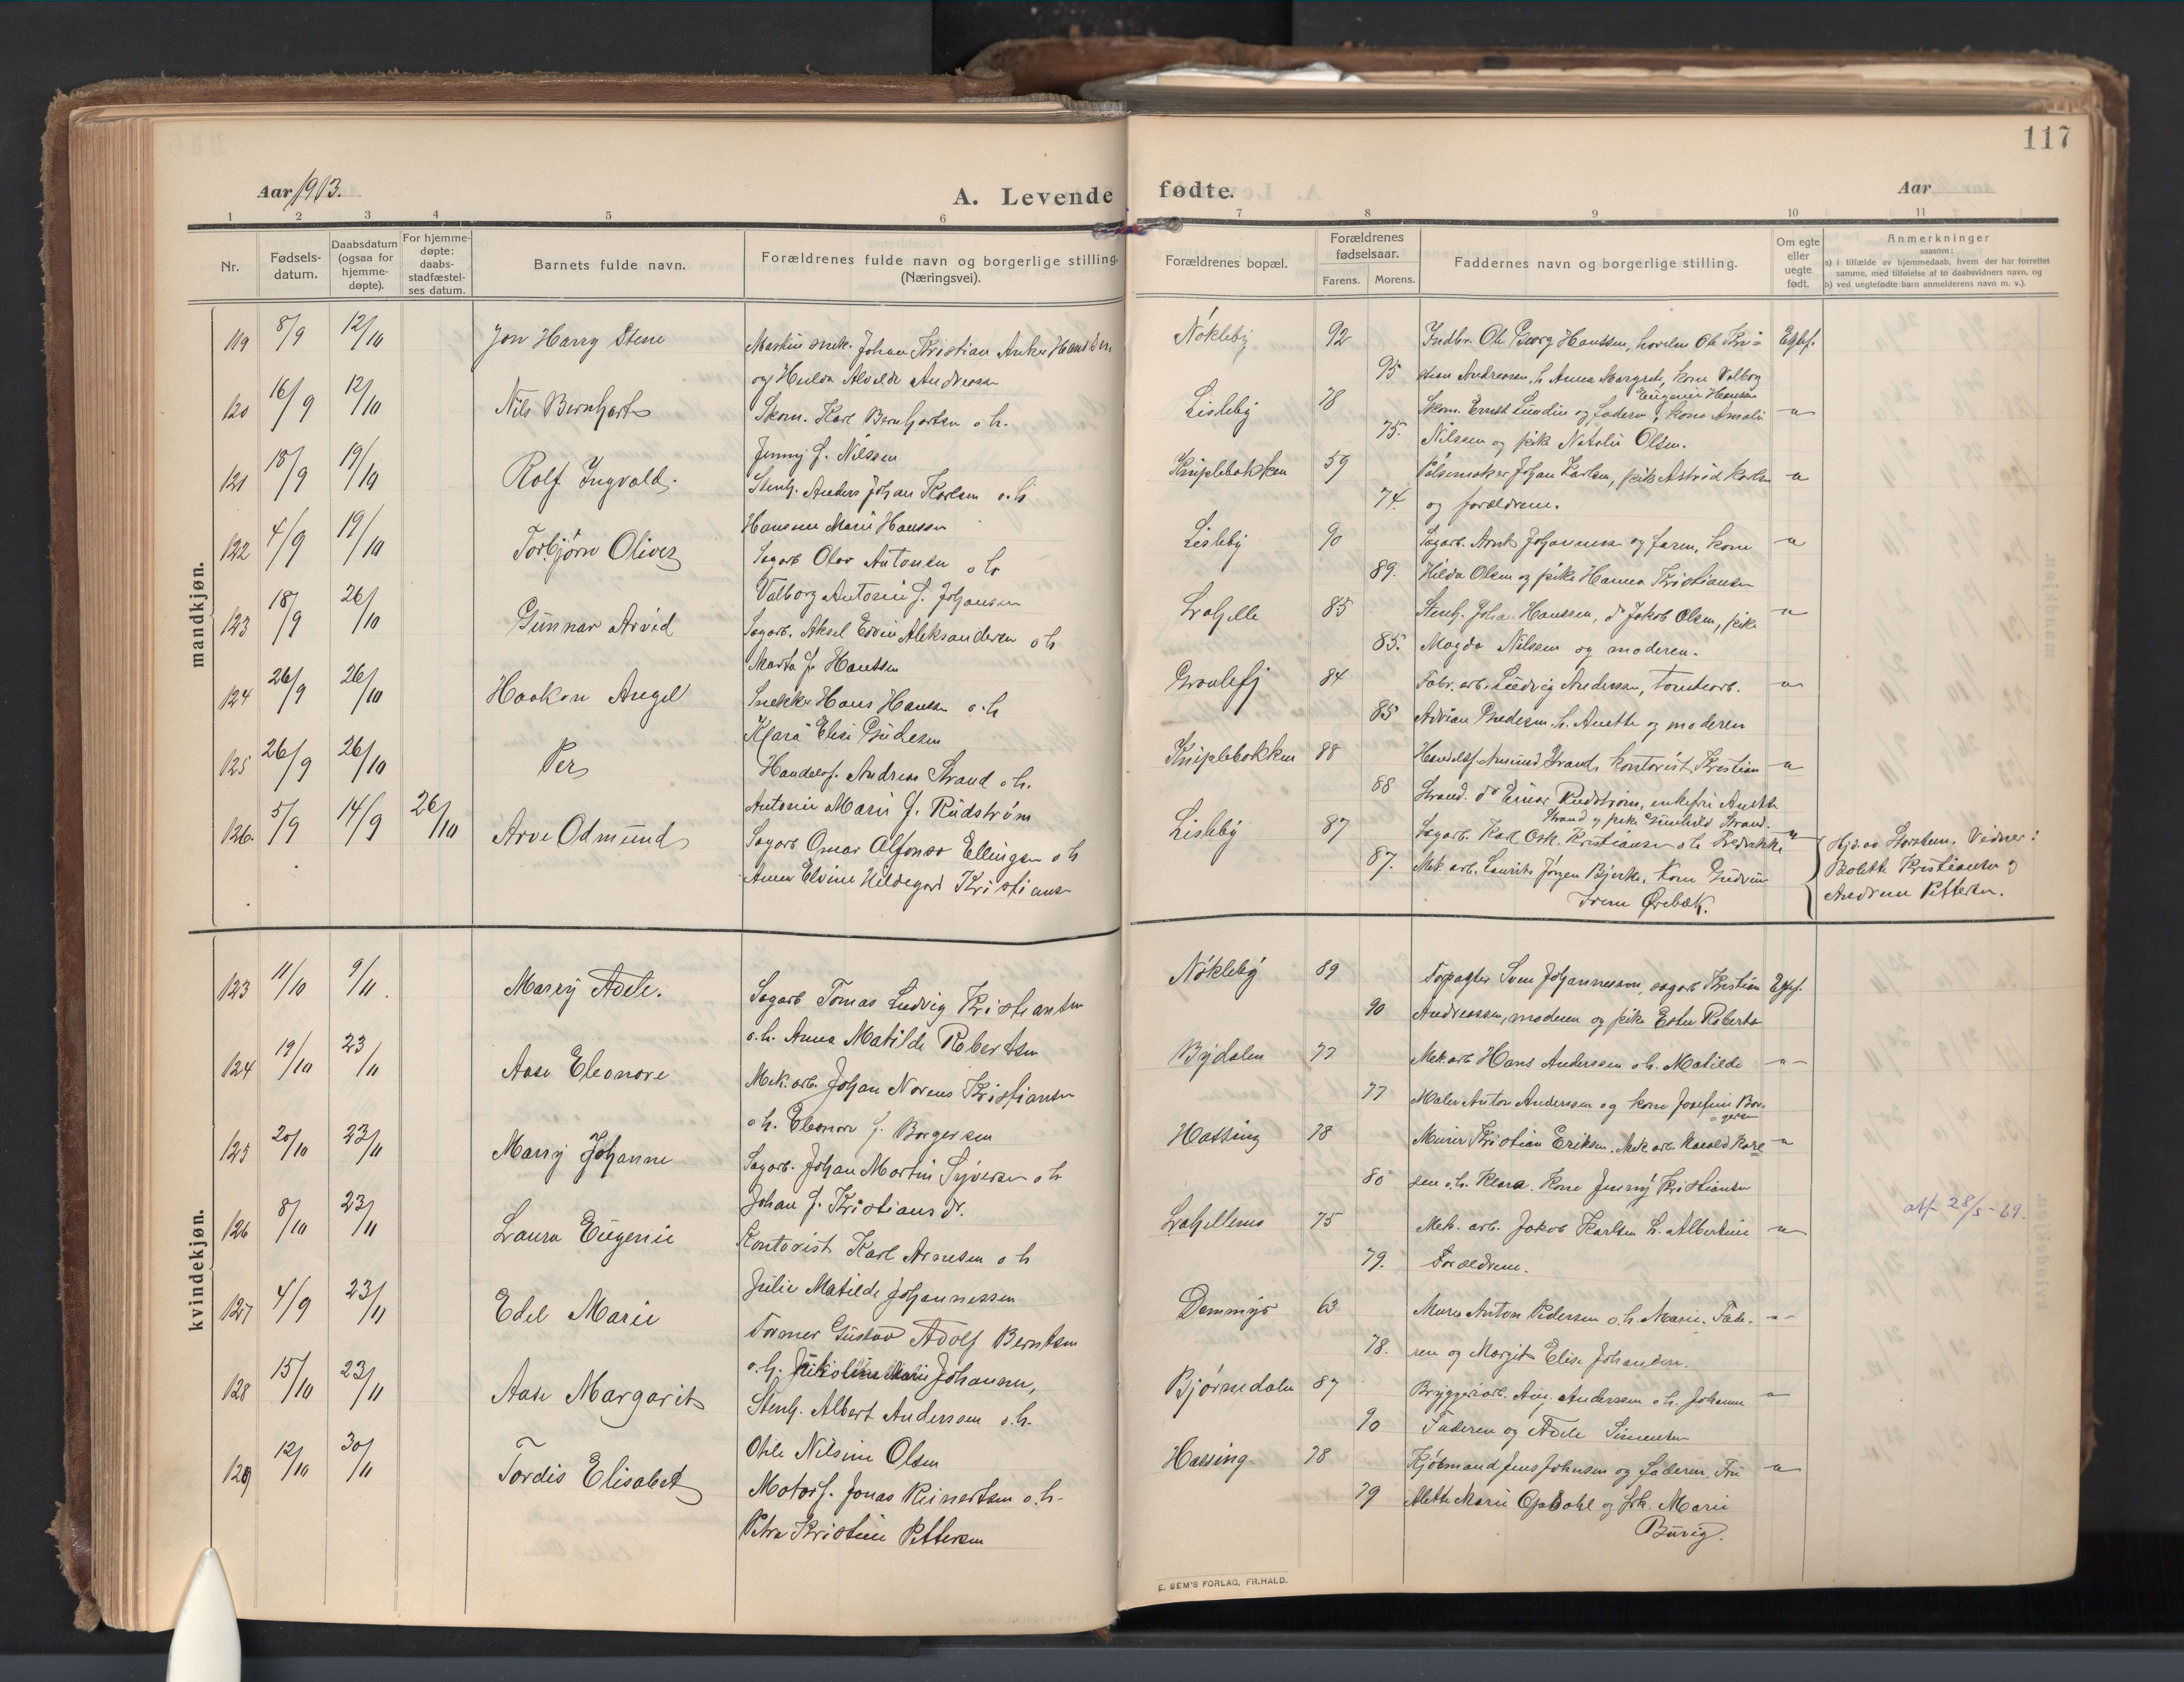 117
Aar 1913.
A. Levende fødte.
Aar
1 2 3 4 5 6 7 8 9 10 11
Nr.
Fødsels-
datum.
Daabsdatum
(ogsaa for
hjemme-
døpte).
For hjemme-
døpte:
daabs-
stadfæstel-
ses datum.
Barnets fulde navn.
Forældrenes fulde navn og borgerlige stilling.
(Næringsvei).
Forældrenes bopæl.
Forældrenes
fødselsaar.
Farens. Morens.
Faddernes navn og borgerlige stilling.
Om egte
eller
uegte
født.
Anmerkninger
saasom:
a) i tilfælde av hjemmedaab, hvem der har forrettet
samme, med tilføielse af to daabsvidners navn, og
b) ved uegtefødte barn anmelderens navn m. v.).
mandkjøn.
119 8/9 12/10 Jon Harry Stene
Maskinsnek. Johan Kristian Anker Hansen
og Hulda Alvilde Andreassen
Nökleby 92 95
Indbr. Ole Georg Hanssen, hovelm Ole Kri-
stian Andreassen, h. Anna Margrete, kone Valborg
Eugenie Hansen
Egtef.
120 16/9 12/10 Nils Bernhart
Skom. Karl Bernhartsen o. h.
Jenny f. Nilssen
Lisleby 78 75.
Skom. Ernst Lundin og faderen, kone Amalie
Nilssen og pike Natalie Olsen.
-"-
121 18/9 19/10 Rolf Ingvald.
Stenh. Anders Johan Karlsen o. h
Hansine Marie Hanssen
Kniplebakken 59 74.
Pølsemaker Johan Karlsen, pike Astrid Karlsen
og forældrene.
-"-
122 4/9 19/10 Torbjørn Oliver
Sagarb Olav Antonsen o h
Valborg Antonie f. Johansen
Lisleby 90 89.
Sagarb. Arnt Johannessen og faren, kone
Hilda Olsen og pike Hanna Kristiansen
-"-
123 18/9 26/10 Gunnar Arvid
Sagarb. Aksel Edvin Aleksandersen o h
Marta f. Hanssen
Lrahelle 85 85.
Stenh. Johan Hanssen, do Jakob Olsen, pike
Magda Nilssen og moderen.
-"-
124 26/9 26/10 Haakon Angel
Snekker Hans Hansen o. h
Klara Elise Gudesen
84 85
Fabr. arb. Ludvig Andersen, tomtearb.
Adrian Gudesen. h. Anette og moderen
-"-
125 26/9 26/10 Per
Handelsf. Andreas Strand o h.
Antonie Marie f. Rudström
Kniplebakken 88 88
Handelsf. Amund Strand, kontorist Kristian
Strand. do Einar Rudstrøm, enkefru Anette
Strand og pike Gunhild Strand.
-"-
126. 5/9 14/9 26/10 Arve Odmund
Sagarb Omar Alfonso Ellingsen o h
Anna Elvine Hildegard Kristianse
Lisleby 87 87.
Sagarb. Karl Osk. Kristiansen o h Fredrikke
Mek. arb. Laurits Jørgen Bjerke. Kone Gudrun
Irene Ørebæk.
-"-
Vidner:
Bolette Kristiansen og
Andrine Pettersen.
kvindekjøn.
123 11/10 9/11. Mary Adele.
Sagarb Tomas Ludvig Kristiansen
o. h. Anna Matilde Robertsen
Nökleby 89 90
Forpagter Sven Johannessen, sagarb Kristian
Andreassen, moderen og pike Ester Roberts
Egtef.
124 19/10 23/11 Aase Eleonore
Mek. arb. Johan Norens Kristiansen
o h. Eleonore f. Borgersen
Bydalen 77 77
Mek. arb Hans Anderssen o h. Matilde
Maler Anton Anderssen og kone Josefine Bor-
gersen
-"-
125 20/10 23/11 Marry Johanne
Sagarb. Johan Martin Syversen o h
Johan f. Kristiansdr.
Hassing 78 80
Murer Kristian Eriksen. Mek arb. Harald Karl
sen o. h. Klara. Kone Jenny Kristiansen
-"-
126 8/10 23/11 Laura Eugenie
Kontorist Karl Arnesen o h
Julie Matilde Johannessen
75 79.
Mek. arb. Jakob Karlsen h. Albertine
Forældrene.
-"-
28/5-69.
127 4/9 23/11 Edel Marie
Former Gustav Adolf Berntsen
o. h. Nikoline Marie Johanne,
Dammyr 63 78.
Murer Anton Pedersen o. h. Marie. Fade-
ren og Margit Elise Johansen.
-"-
128 15/10 23/11 Aase Margarit
Stenh. Albert Anderssen o. h.
Otile Nilsine Olsen
Bjørnedalen 87 90
Bryggeriarb. Aug. Anderssen o h. Johanne
Faderen og Adele Simensen
-"-
129 12/10 30/11 Tordis Elisabet
Motorf. Jonas Reinertsen o. h.
Petra Kristine Pettersen
Hassing 78 79
Kjøbmand Jens Johnsen og faderen. Fru
Alette Marie Opdahl og frk. Marie
Burig.
-"-
E. SEM'S FORLAG, FR.HALD.